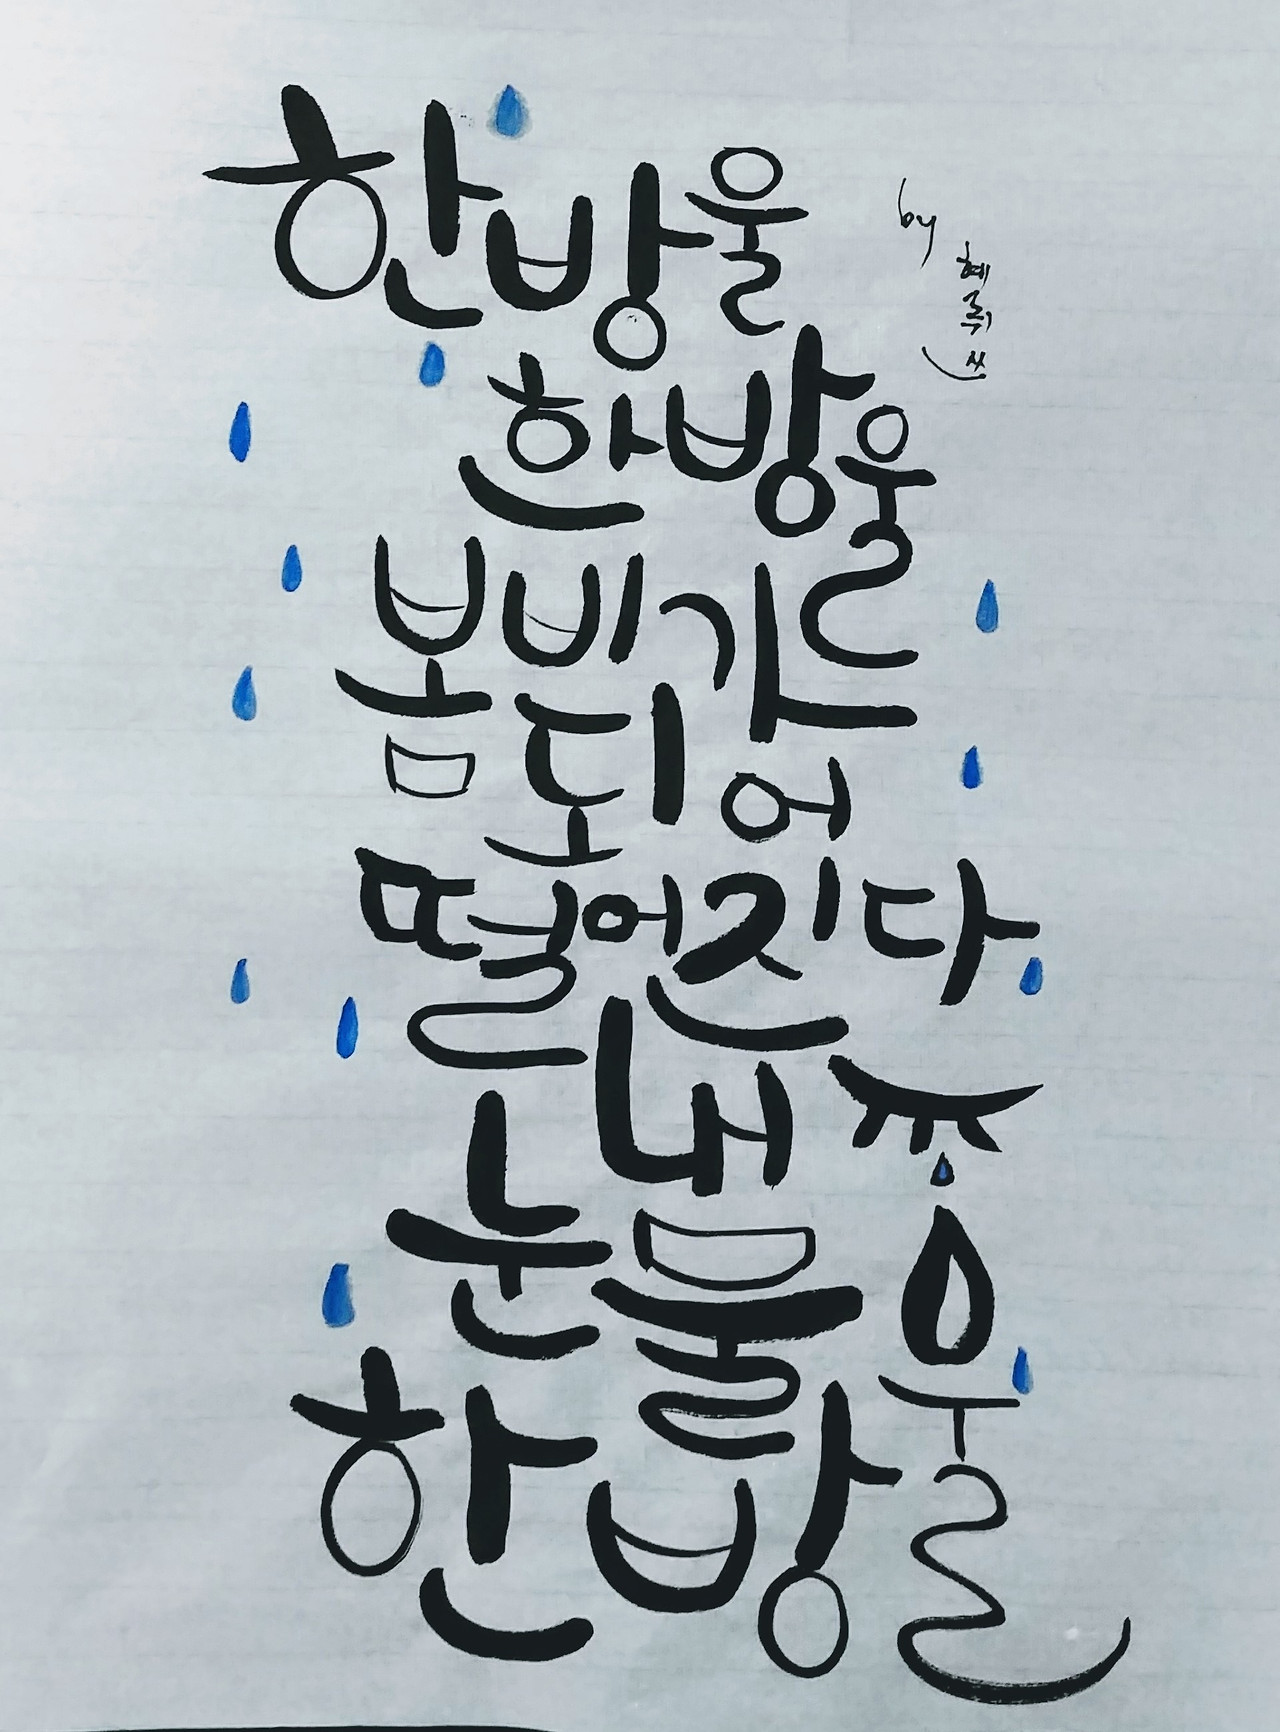 한방울
by
한방울
봄비가
되어
떨어진다
내
눈물
한방울